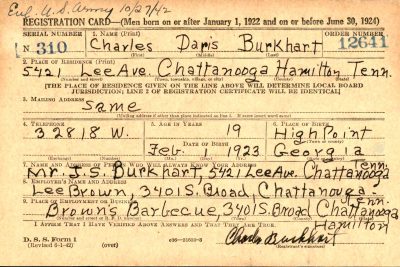 Enl. U.S. Army 10/27/42
REGISTRATION CARD—(Men born on or after January 1, 1922 and on or before June 30, 1924)
SERIAL NUMBER 1. NAME (Print) ORDER NUMBER
N 310 Charles Davis Burkhart 12641
2. PLACE OF RESIDENCE (Print)
5421 Lee Ave. Chattanooga Hamilton Tenn.
(Number and street) (Town, township, village, or city) (County) (State)
[THE PLACE OF RESIDENCE GIVEN ON THE LINE ABOVE WILL DETERMINE LOCAL BOARD
JURISDICTION; LINE 2 OF REGISTRATION CERTIFICATE WILL BE IDENTICAL]
3. MAILING ADDRESS
Same
[Mailing address if other than place indicated on line 2. If same insert word same]
4. TELEPHONE 5. AGE IN YEARS 6. PLACE OF BIRTH
3 2818 W. 19 High Point
DATE OF BIRTH
Feb. 1923 Georgia
7. NAME AND ADDRESS OF PERSON WHO WILL ALWAYS KNOW YOUR ADDRESS
Mr. J. S. Burkhart, 5421 Lee Ave. Chattanooga Tenn.
8. EMPLOYER'S NAME AND ADDRESS
Lee Brown, 3401 S. Broad, Chattanooga Tenn.
9. PLACE OF EMPLOYMENT OR BUSINESS
Brown's Barbecue, 3401 S. Broad Chattanooga
Hamilton
I AFFIRM THAT I HAVE VERIFIED ABOVE ANSWERS AND THAT THEY ARE TRUE.
D. S. S. Form 1
(Revised 6-1-42) (over)
Charles Burkhart